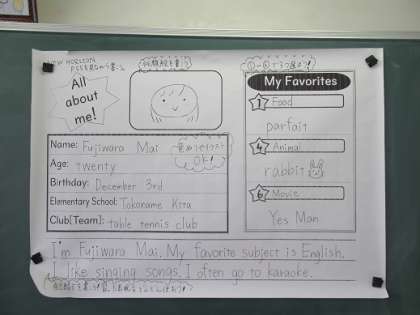 All
about
me!
Name: Fujiwara Mai
Age: twenty
Birthday: December 3rd
Elementary School: Tokoname Kita
Club[Team]: table tennis club
OK!
My Favorites
1 Food
parfait
4 Animal
rabbit
6 Movie
Yes Man
I'm Fujiwara Mai. My favorite subject is English.
I like singing songs. I often go to karaoke.